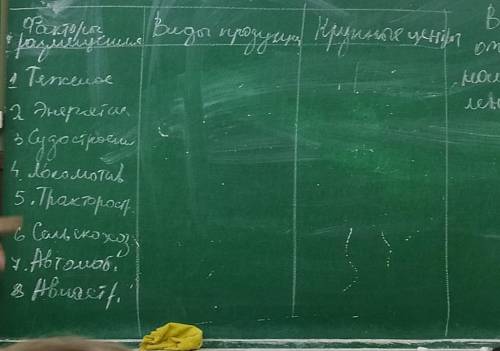 Факторы размещения
Виды продукции
Крупные центры
1 Тяжелое
2 Энергетич
3 Судостроен
4 Локомотив
5. Тракторостр.
6 Сельскохоз
7. Автомоб.
8 Авиастр.
В